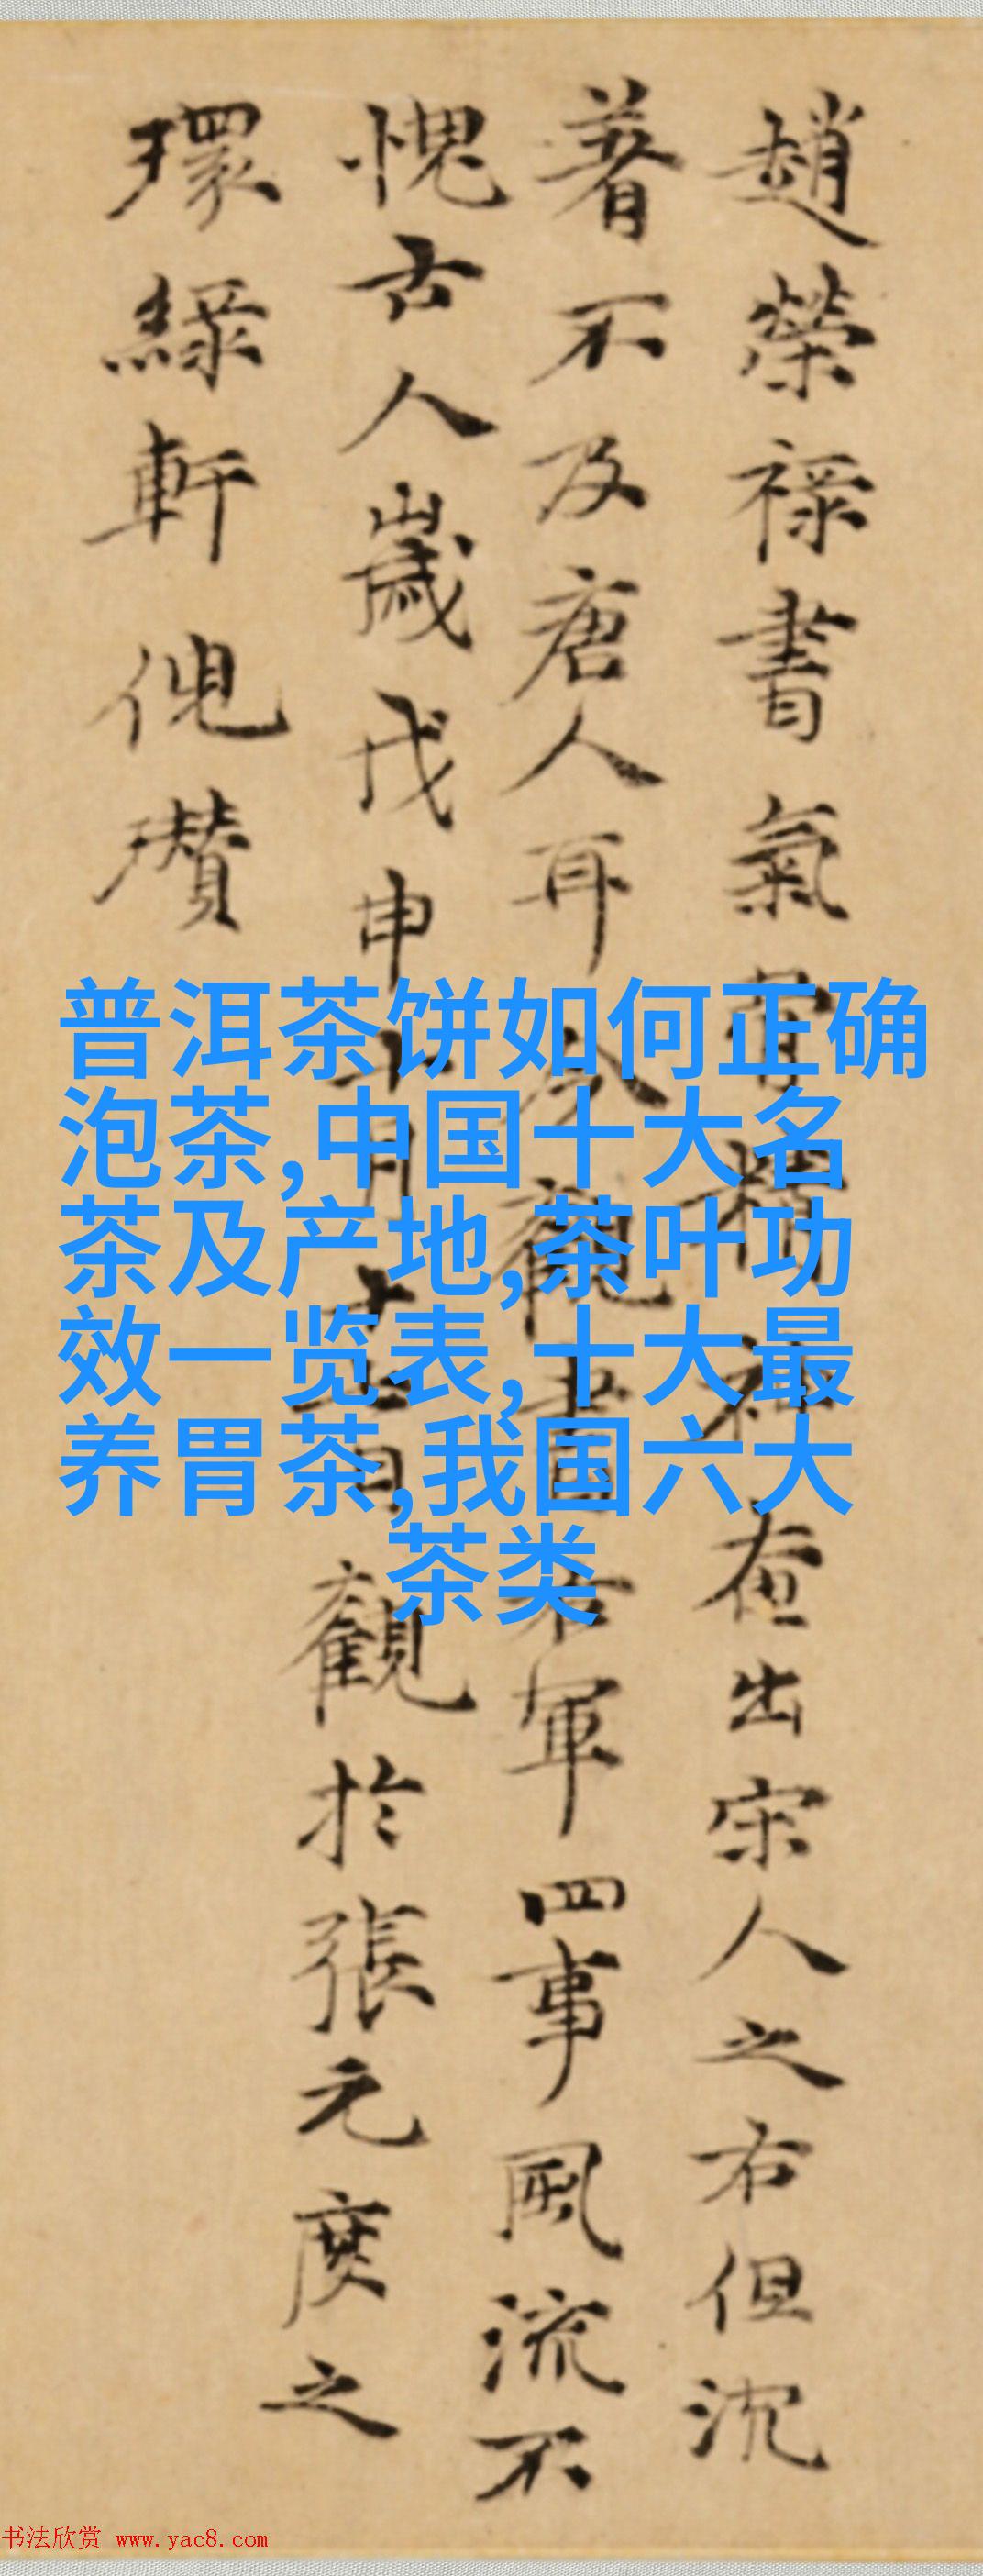 趙榮祿書氣骨精神奄出宋人之右但沉
著不及唐人耳今觀書右軍四事風流不
愧古人歲戊申十月十七日觀於張元度之
環綠軒倪瓚
普洱茶饼如何正确
泡茶,中国十大名
茶及产地,茶叶功
效一览表,十大最
养胃茶,我国六大
茶类
书法欣赏 www.yac8.com